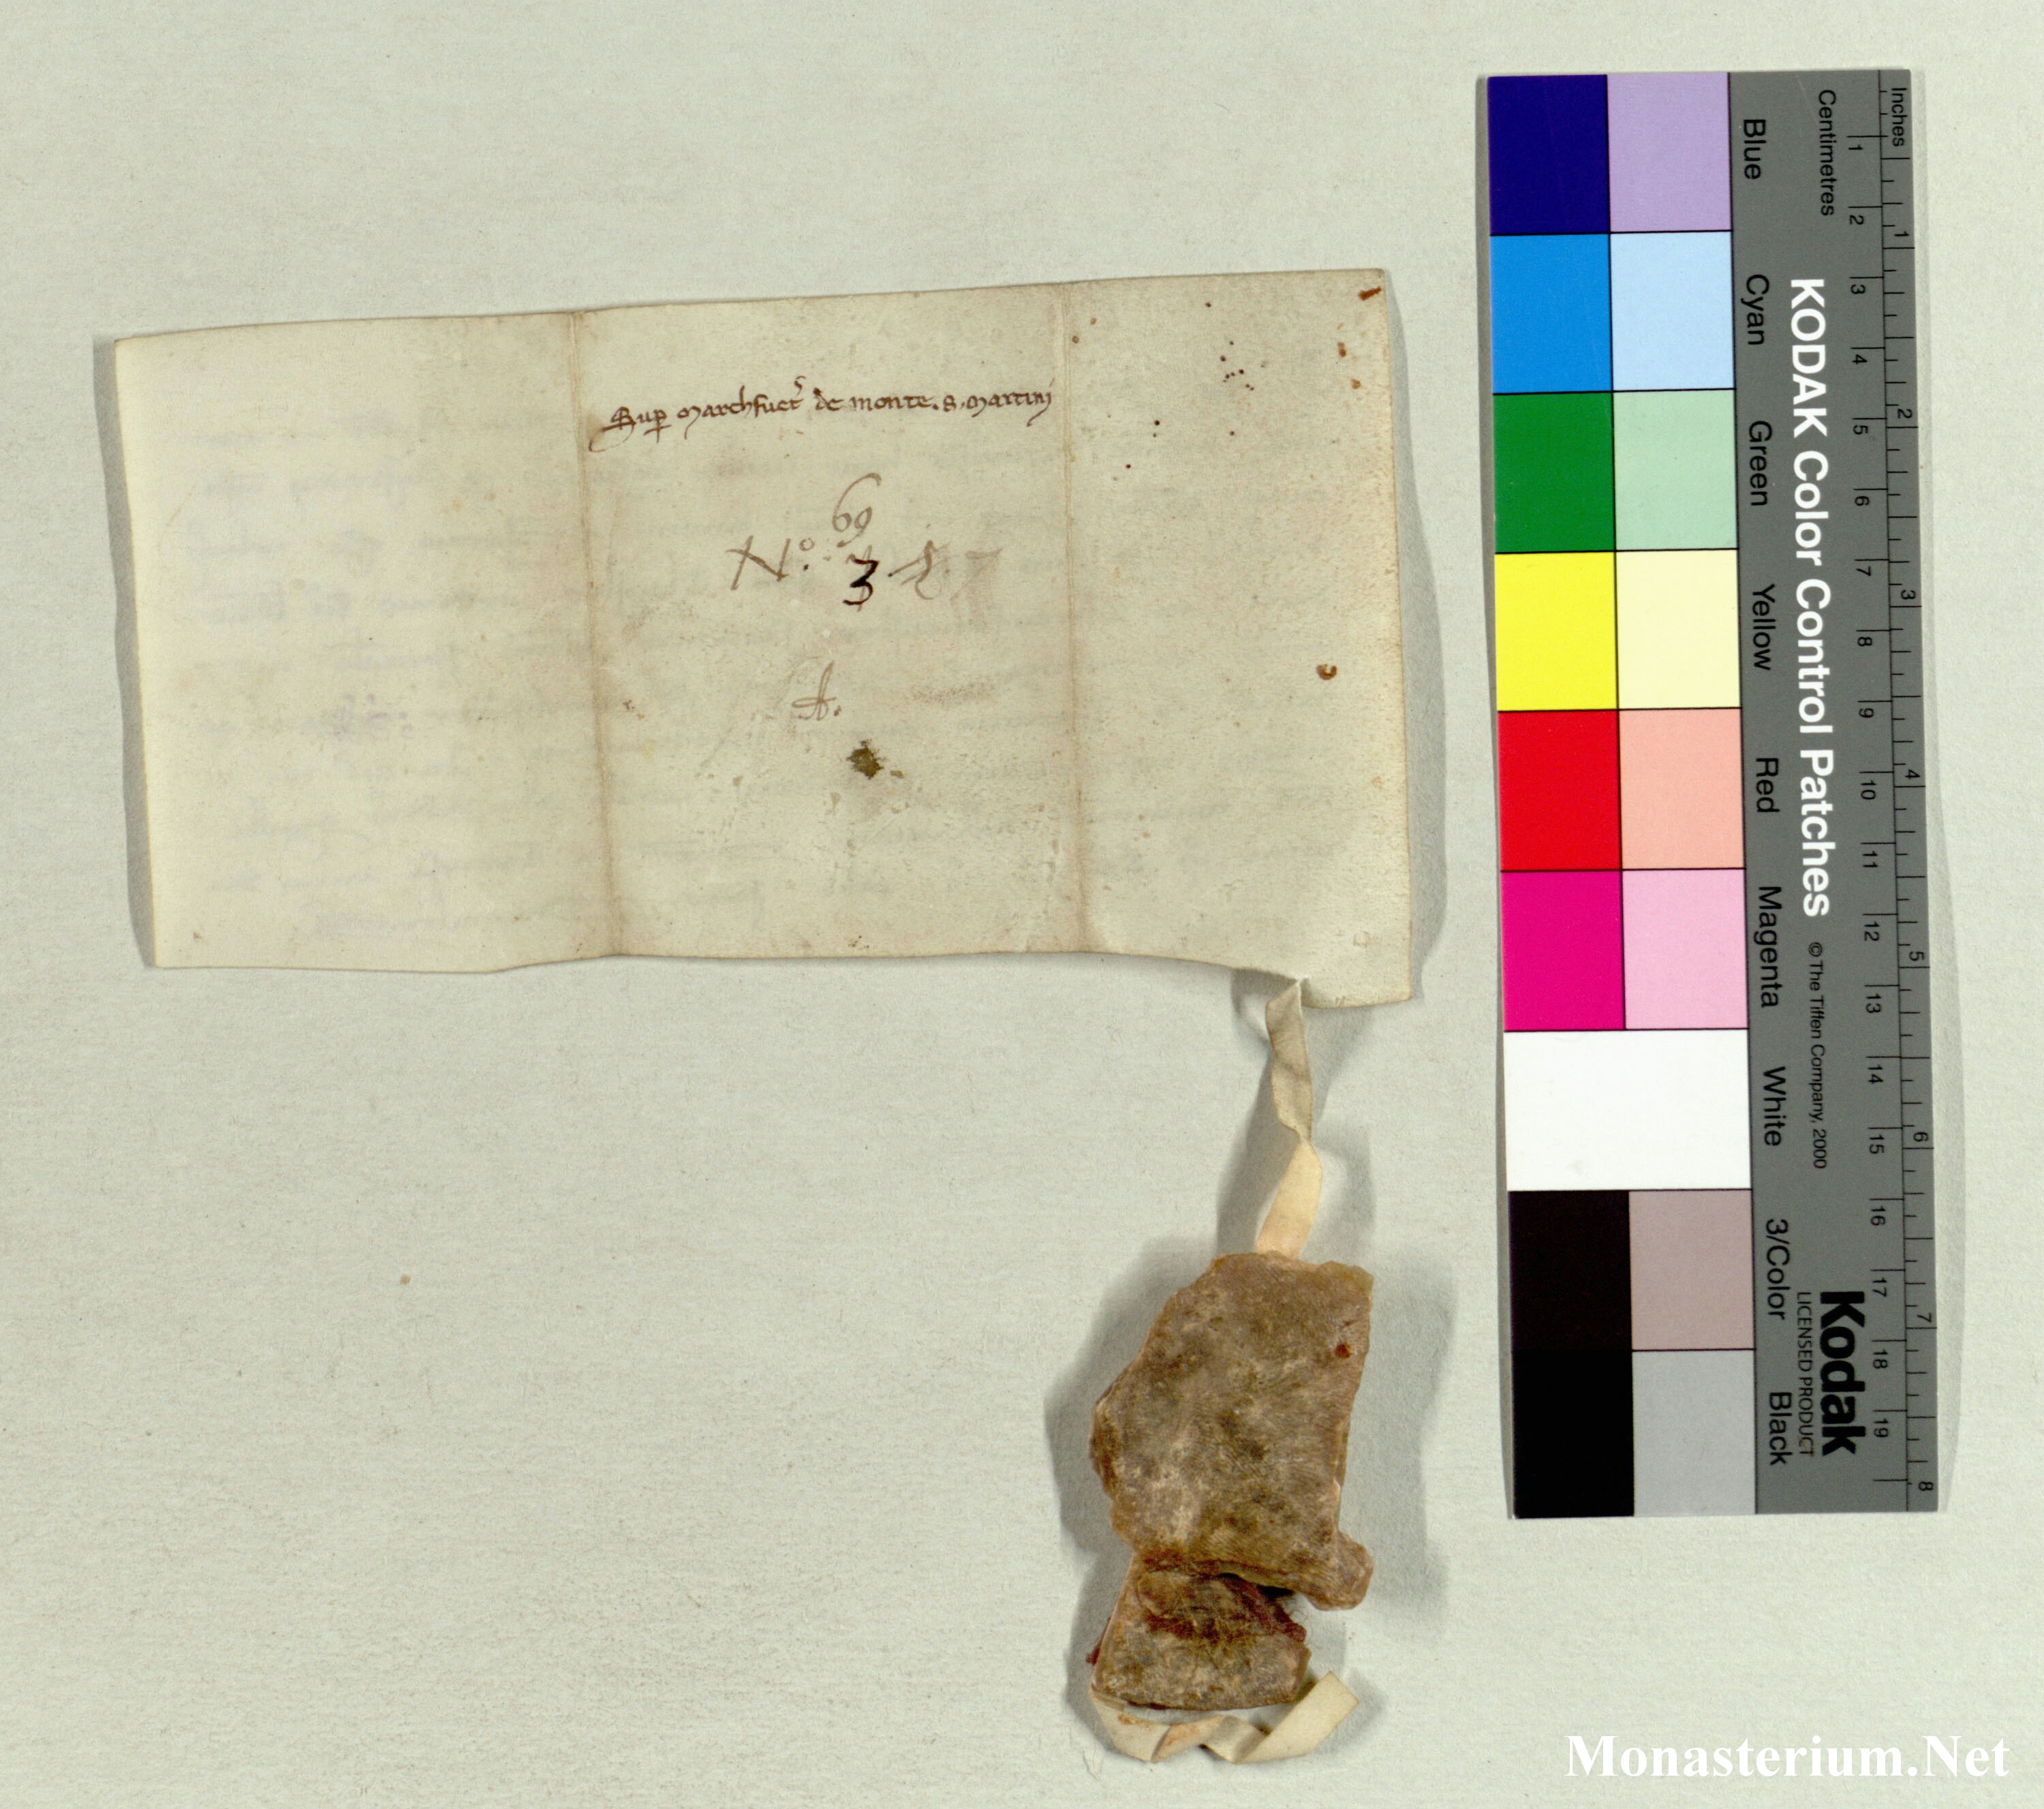 Sup marchfuet de monte . s . martini
69
N.º 3
A.
Inches
Centimetres
1 2 3 4 5 6 7 8 9 10 11 12 13 14 15 16 17 18 19
1 2 3 4 5 6 7 8
KODAK Color Control Patches © The Tiffen Company, 2000
Kodak
LICENSED PRODUCT
Blue Cyan Green Yellow Red Magenta White 3/Color Black
Monasterium.Net